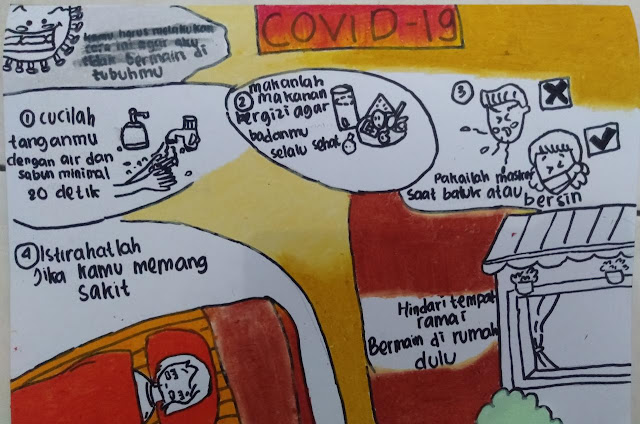 COVID-19
Kamu harus melakukan
cara ini agar aku
tidak bermain di
tubuhmu
① cucilah
tanganmu
dengan air dan
sabun minimal
20 detik
② makanlah
makanan
bergizi agar
badanmu
selalu sehat
③
Pakailah masker
saat batuk atau bersin
④ Istirahatlah
Jika kamu memang
sakit
Hindari tempat
ramai
Bermain di rumah
dulu